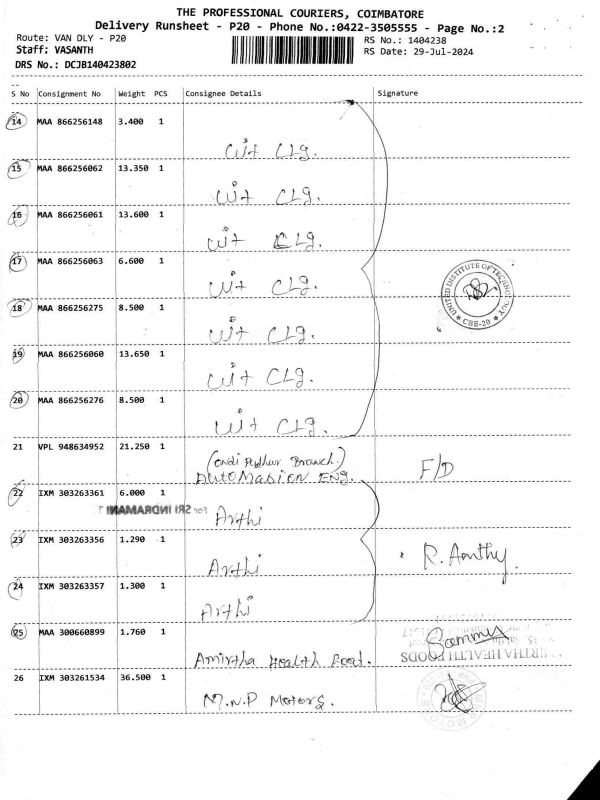 THE PROFESSIONAL COURIERS, COIMBATORE
Delivery Runsheet - P20 - Phone No.:0422-3505555 - Page No.:2
Route: VAN DLY - P20
RS No.: 1404238
Staff: VASANTH
RS Date: 29-Jul-2024
DRS No.: DCJB140423802
S No Consignment No Weight PCS Consignee Details Signature
14 MAA 866256148 3.400 1
Uit Clg.
15 MAA 866256062 13.350 1
Uit Clg.
16 MAA 866256061 13.600 1
Uit Clg.
17 MAA 866256063 6.600 1
Uit Clg.
UNITED INSTITUTE OF TECHNOLOGY
* CBE-20 *
18 MAA 866256275 8.500 1
Uit Clg.
19 MAA 866256060 13.650 1
Uit Clg.
20 MAA 866256276 8.500 1
Uit Clg.
21 VPL 948634952 21.250 1
Branch)
AUTOMASION ENG. F/D
22 IXM 303263361 6.000 1
For SRI INDRAMANI
Arthi
23 IXM 303263356 1.290 1
Arthi
R. Aanthy.
24 IXM 303263357 1.300 1
Arthi
25 MAA 300660899 1.760 1
Amirtha Health Food.
HEALTH FOODS
26 IXM 303261534 36.500 1
M.N.P Motors.